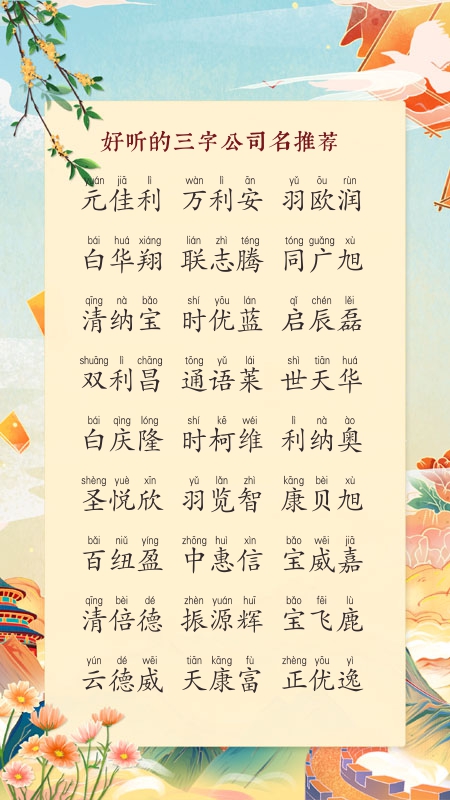 好听的三字公司名推荐
yuán jiā lì wàn lì ān yǔ ōu rùn
元佳利 万利安 羽欧润
bái huá xiáng lián zhì téng tóng guǎng xù
白华翔 联志腾 同广旭
qīng nà bǎo shí yōu lán qǐ chén lěi
清纳宝 时优蓝 启辰磊
shuāng lì chāng tōng yǔ lái shì tiān huá
双利昌 通语莱 世天华
bái qìng lóng shí kē wéi lì nà ào
白庆隆 时柯维 利纳奥
shèng yuè xīn yǔ lǎn zhì kāng bèi xù
圣悦欣 羽览智 康贝旭
bǎi niǔ yíng zhōng huì xìn bǎo wēi jiā
百纽盈 中惠信 宝威嘉
qīng bèi dé zhèn yuán huī bǎo fēi lù
清倍德 振源辉 宝飞鹿
yún dé wēi tiān kāng fù zhèng yōu yì
云德威 天康富 正优逸